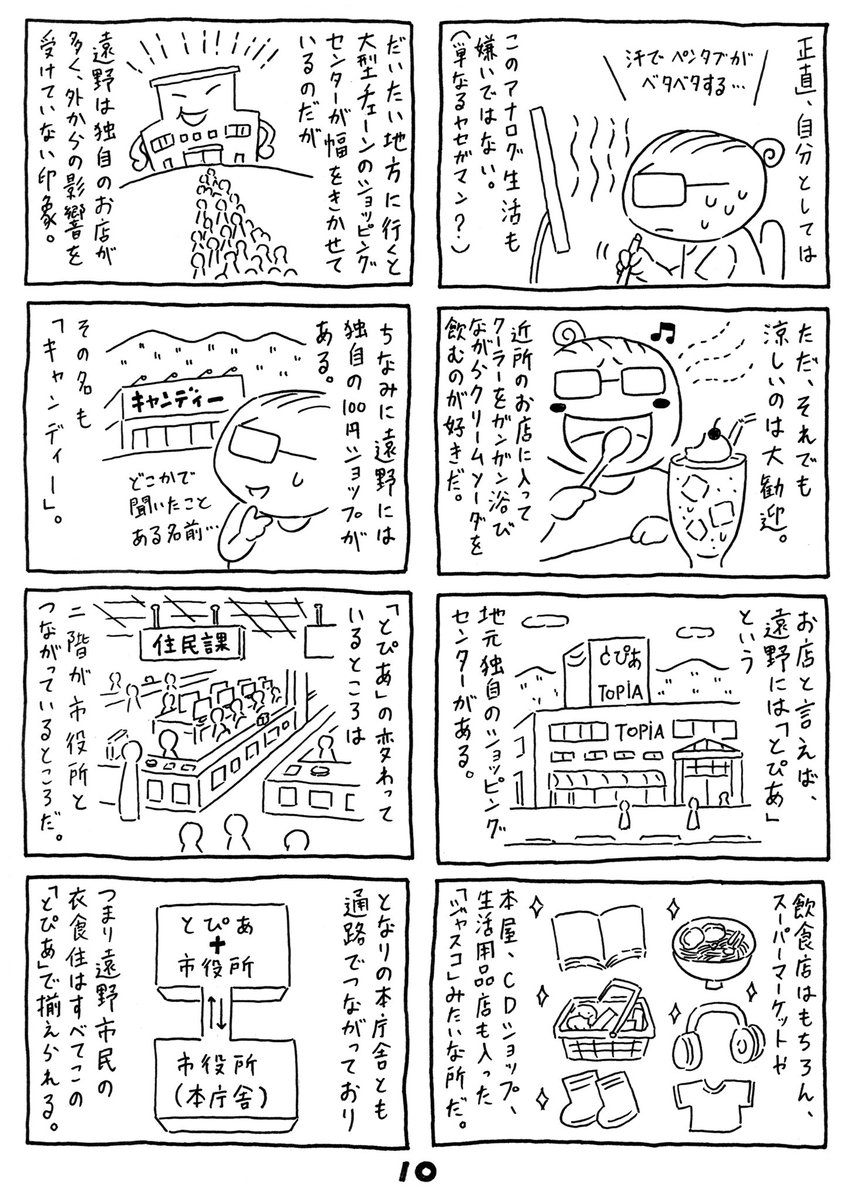 正直、自分としては
汗でペンタブが
ベタベタする…
このアナログ生活も
嫌いではない。
(単なるヤセガマン?)
ただ、それでも
涼しいのは大歓迎。
近所のお店に入って
クーラーをガンガン浴び
ながらクリームソーダを
飲むのが好きだ。
お店と言えば、
遠野には「とぴあ」
という
とぴあ
TOPIA
TOPIA
地元独自のショッピング
センターがある。
飲食店はもちろん、
スーパーマーケットや
本屋、CDショップ、
生活用品店も入った
「ジャスコ」みたいな所だ。
だいたい地方に行くと
大型チェーンのショッピング
センターが幅をきかせて
いるのだが
遠野は独自のお店が
多く、外からの影響を
受けていない印象。
ちなみに遠野には
独自の100円ショップが
ある。
キャンディー
どこかで
聞いたこと
ある名前…
その名も
「キャンディー」。
「とぴあ」の変わって
いるところは
住民課
二階が市役所と
つながっているところだ。
となりの本庁舎とも
通路でつながっており
とぴあ
+
市役所
市役所
(本庁舎)
つまり遠野市民の
衣食住はすべてこの
「とぴあ」で揃えられる。
10